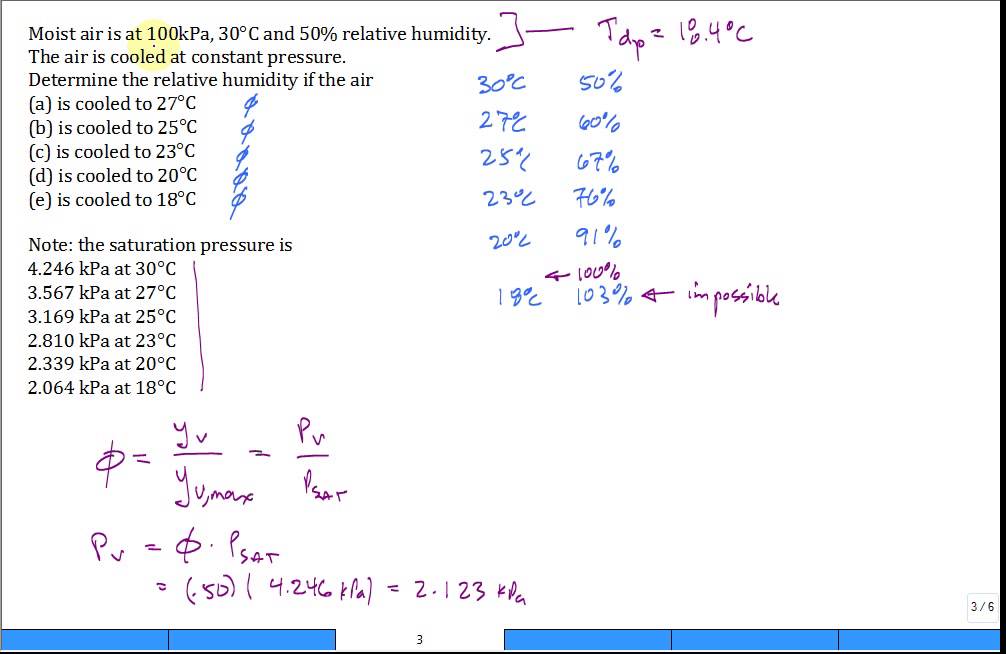 Moist air is at 100kPa, 30°C and 50% relative humidity. ] — Tdp = 18.4°C
The air is cooled at constant pressure.
Determine the relative humidity if the air
(a) is cooled to 27°C ϕ
(b) is cooled to 25°C ϕ
(c) is cooled to 23°C ϕ
(d) is cooled to 20°C ϕ
(e) is cooled to 18°C ϕ
30°C 50%
27°C 60%
25°C 67%
23°C 76%
20°C 91%
← 100%
18°C 103% ← impossible
Note: the saturation pressure is
4.246 kPa at 30°C
3.567 kPa at 27°C
3.169 kPa at 25°C
2.810 kPa at 23°C
2.339 kPa at 20°C
2.064 kPa at 18°C
ϕ = yv / yv,max = Pv / PSAT
Pv = ϕ · PSAT
= (.50) ( 4.246 kPa) = 2.123 kPa
3 / 6
3